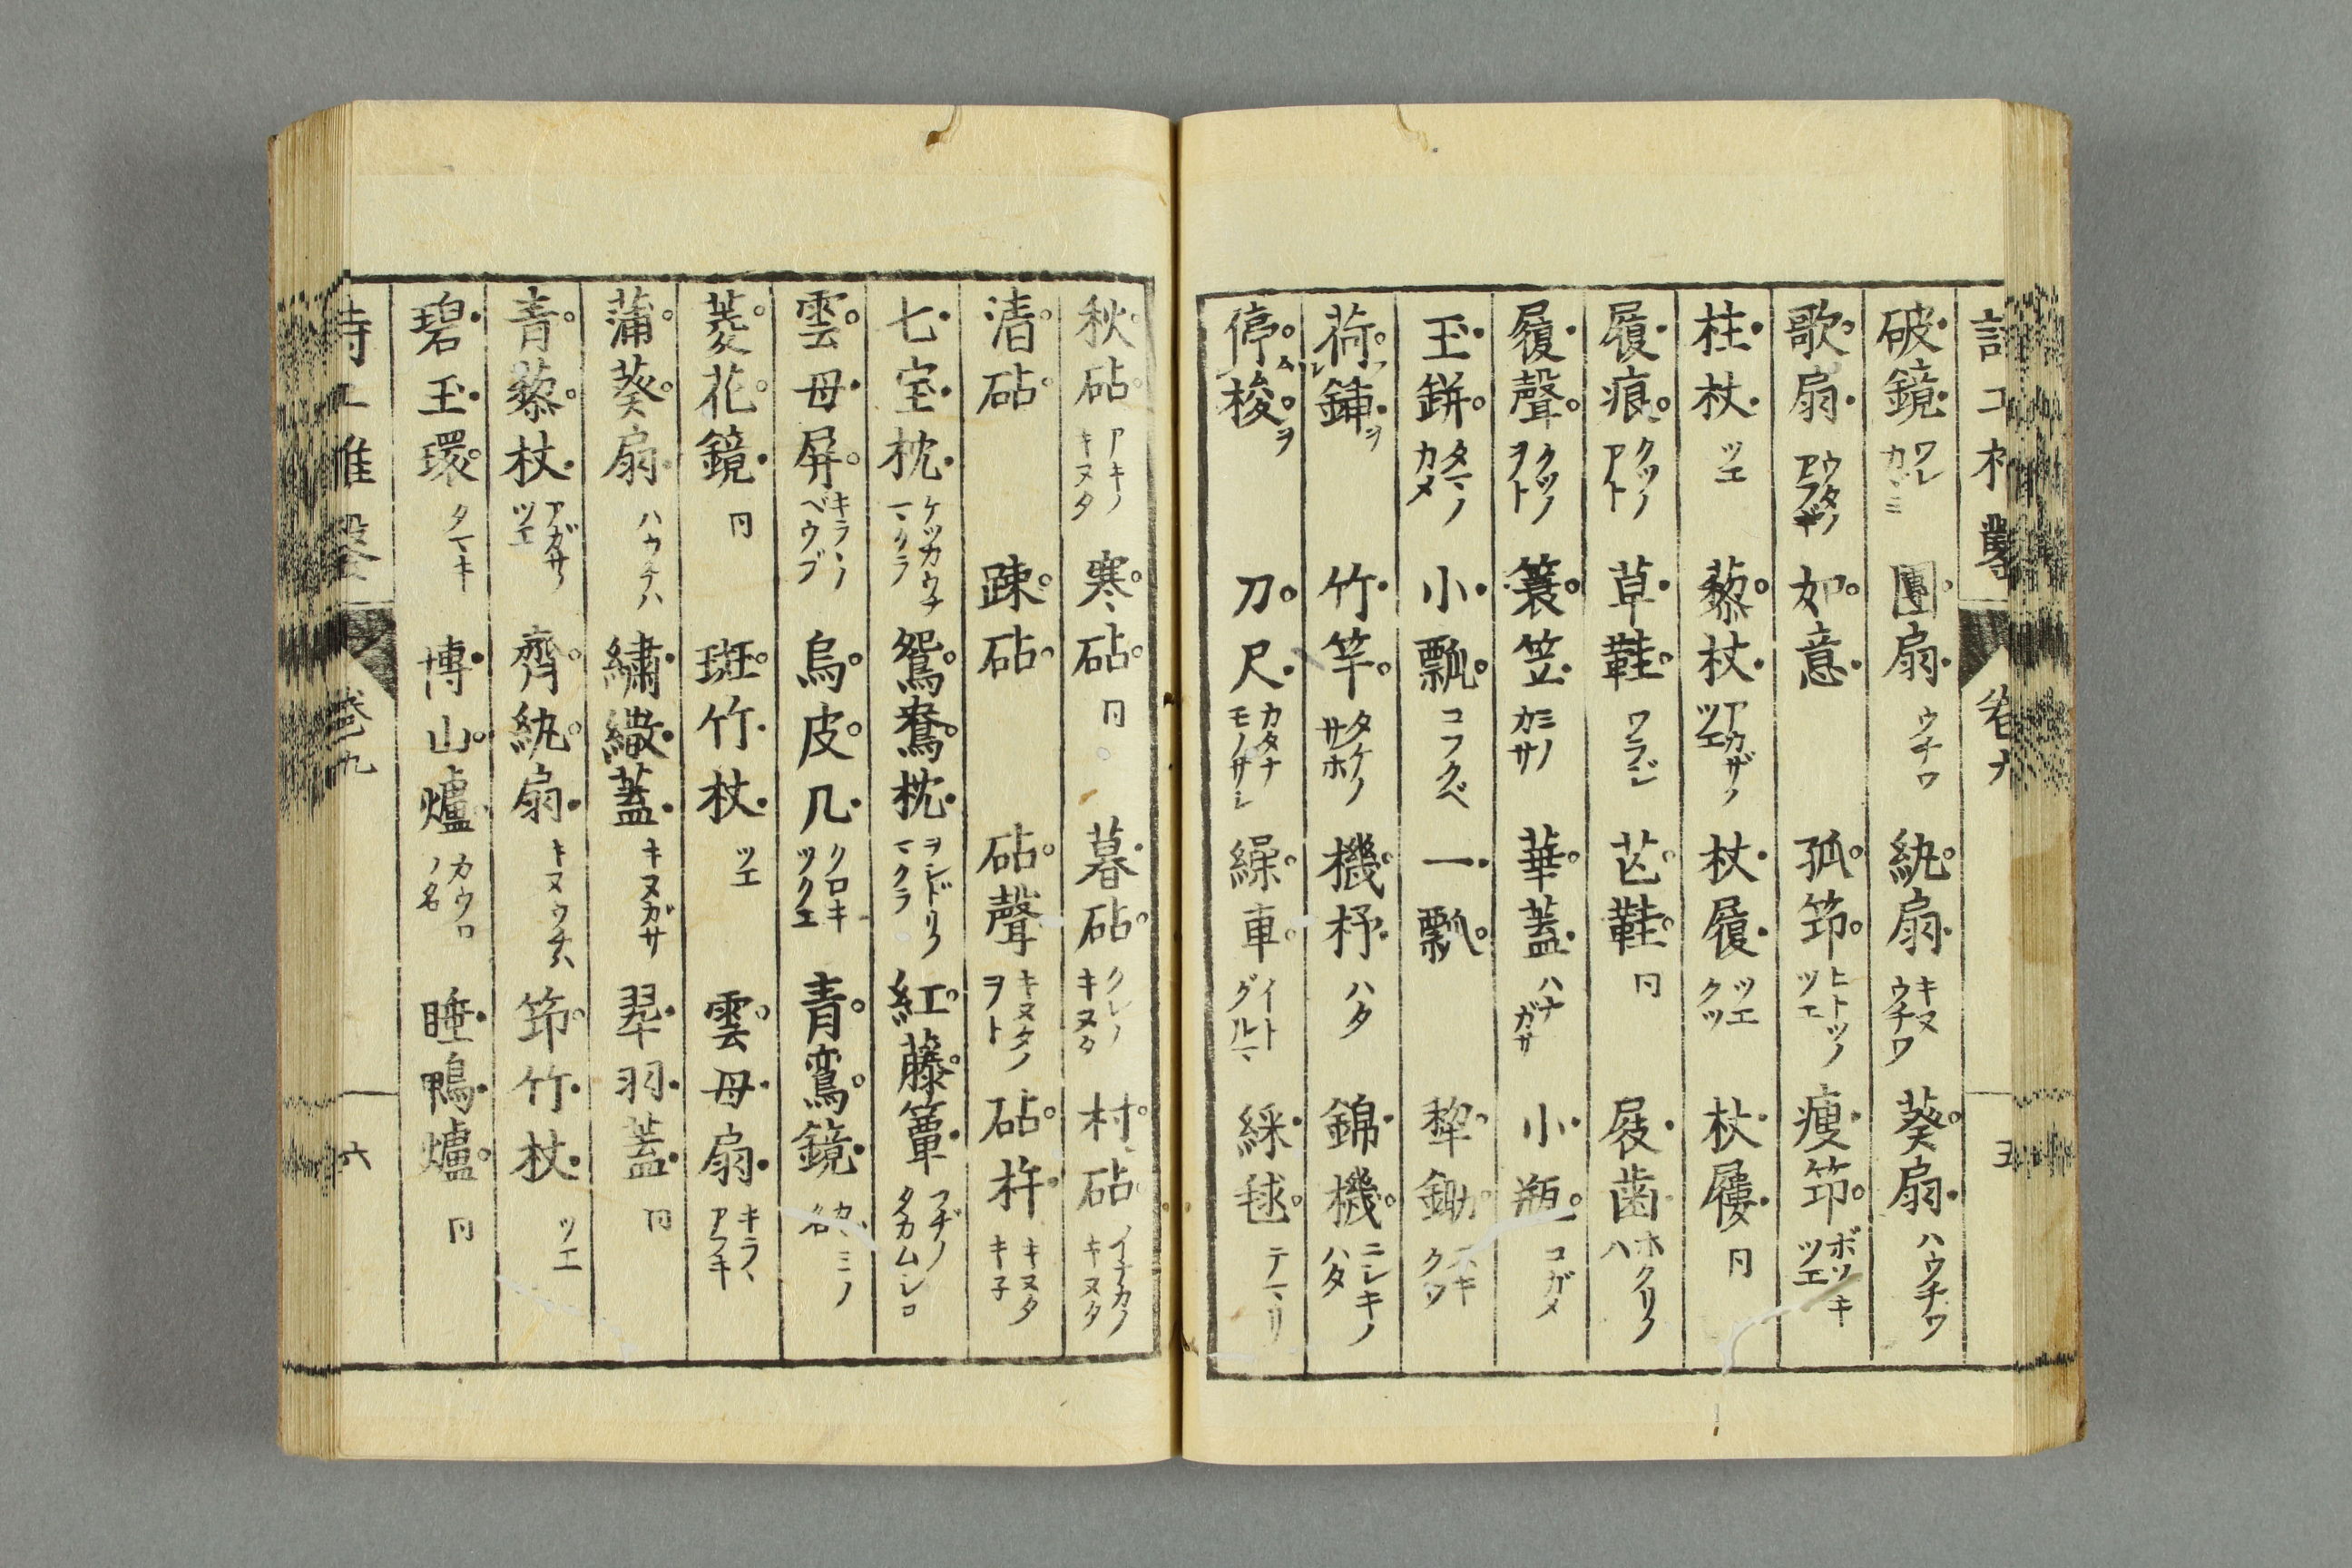 破鏡 ワレカヾミ 團扇 ウチワ 紈扇 キヌウチワ 葵扇 ハウチワ
歌扇 ウタノアフギ 如意 孤笻 ヒトツノツエ 瘦笻 ボソキツエ
柱杖 ツエ 藜杖 アカザノツエ 杖履 ツエクツ 杖屨 同
履痕 クツノアト 草鞋 ワラジ 芒鞋 同 屐齒 ホクリノハ
履聲 クツノヲト 簑笠 ミノカサ 華蓋 ハナガサ 小瓶 コガメ
玉鉼 タマノカメ 小瓢 コフクベ 一瓢 犂鋤 スキクワ
荷鍤 フレヲ 竹竿 タケノサホ 機杼 ハタ 錦機 ニシキノハタ
停梭 ヲ 刀尺 カタナモノサシ 繰車 イトグルマ 綵毬 テマリ
秋砧 アキノキヌタ 寒砧 同 暮砧 クレノキヌタ 村砧 イナカノキヌタ
清砧 踈砧 砧聲 キヌタノヲト 砧杵 キヌタキ子
七宝枕 ケツカウナマクラ 鴛鴦枕 ヲシドリノマクラ 紅藤簟 フヂノタカムシロ
雲母屏 キラヽノベウブ 烏皮几 クロキツクエ 青鸞鏡 カヾミノ名
菱花鏡 同 斑竹杖 ツエ 雲母扇 キラヽアフキ
蒲葵扇 ハウチハ 繡繖蓋 キヌガサ 翠羽蓋 同
青藜杖 アカザノツエ 齊紈扇 キヌウチハ 笻竹杖 ツエ
碧玉環 タマキ 博山爐 カウロノ名 睡鴨爐 同
卷九 六